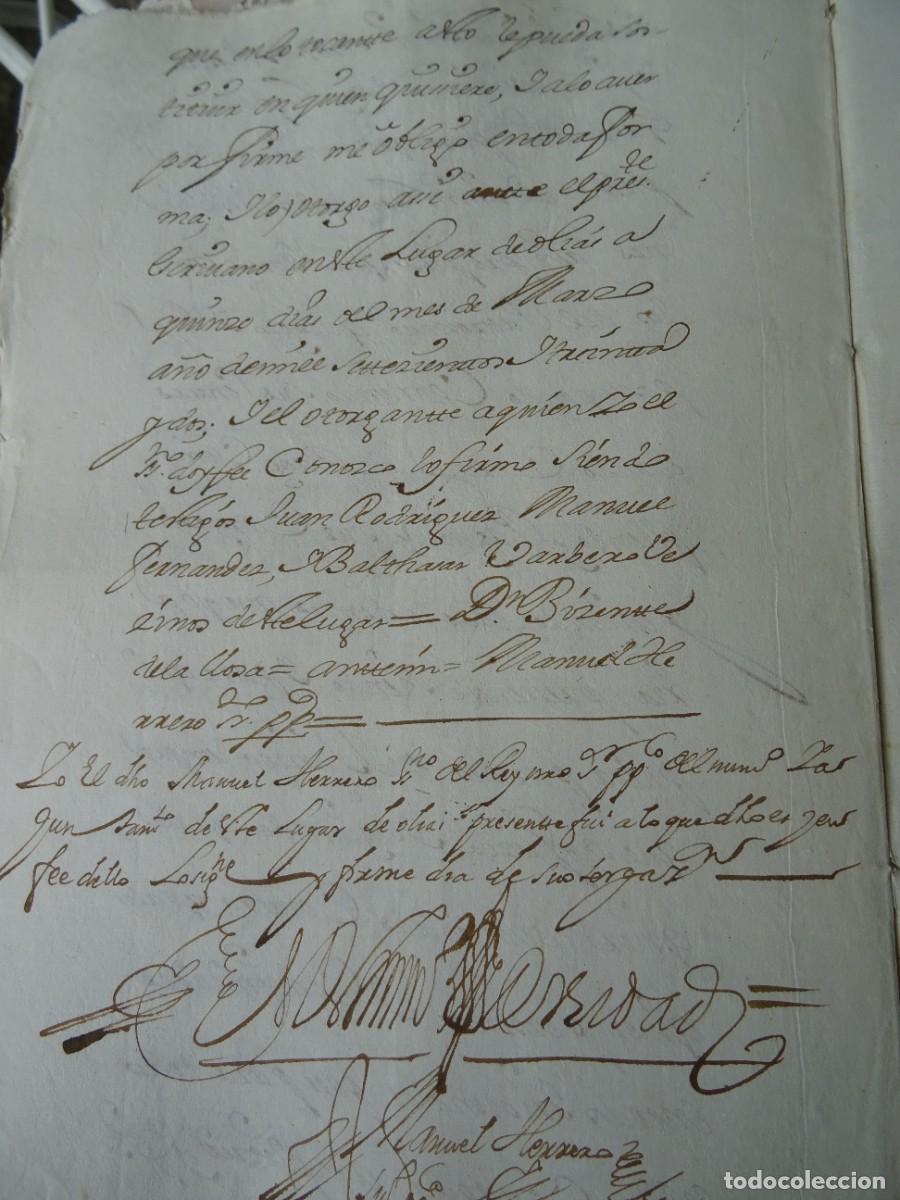 que, en lo tocantte a ello le pueda sos-
tituir en quien quisiere, I alo aver
por firme me obligo en toda for
ma; I lo otorgo assi antte el pres.te
Escrivano en estte Lugar de olias a
quinze dias del mes de Marzo
año de mill settezientos I treintta
y dos; I el otorgantte a quien Yo el
Ss.no doy fee Conozco lo firmo Siendo
testigos Juan Rodriguez Manuel
Fernandez, I Balthasar Barbero Ve
zinos de estte lugar = D.n Bizentte
de la llosa = antte mi = Manuel He
rrero
Yo El dho Manuel Herrero ss.no del Rey nro s.r pp.co del num.o Y a
yun tam.to de estte Lugar de olias presentte fui a lo que dho es y en
fee de ello Lo sig.ne y firme dia de su otorgaz.n
En testimonio de Verdad
Manuel Herrero
todocoleccion